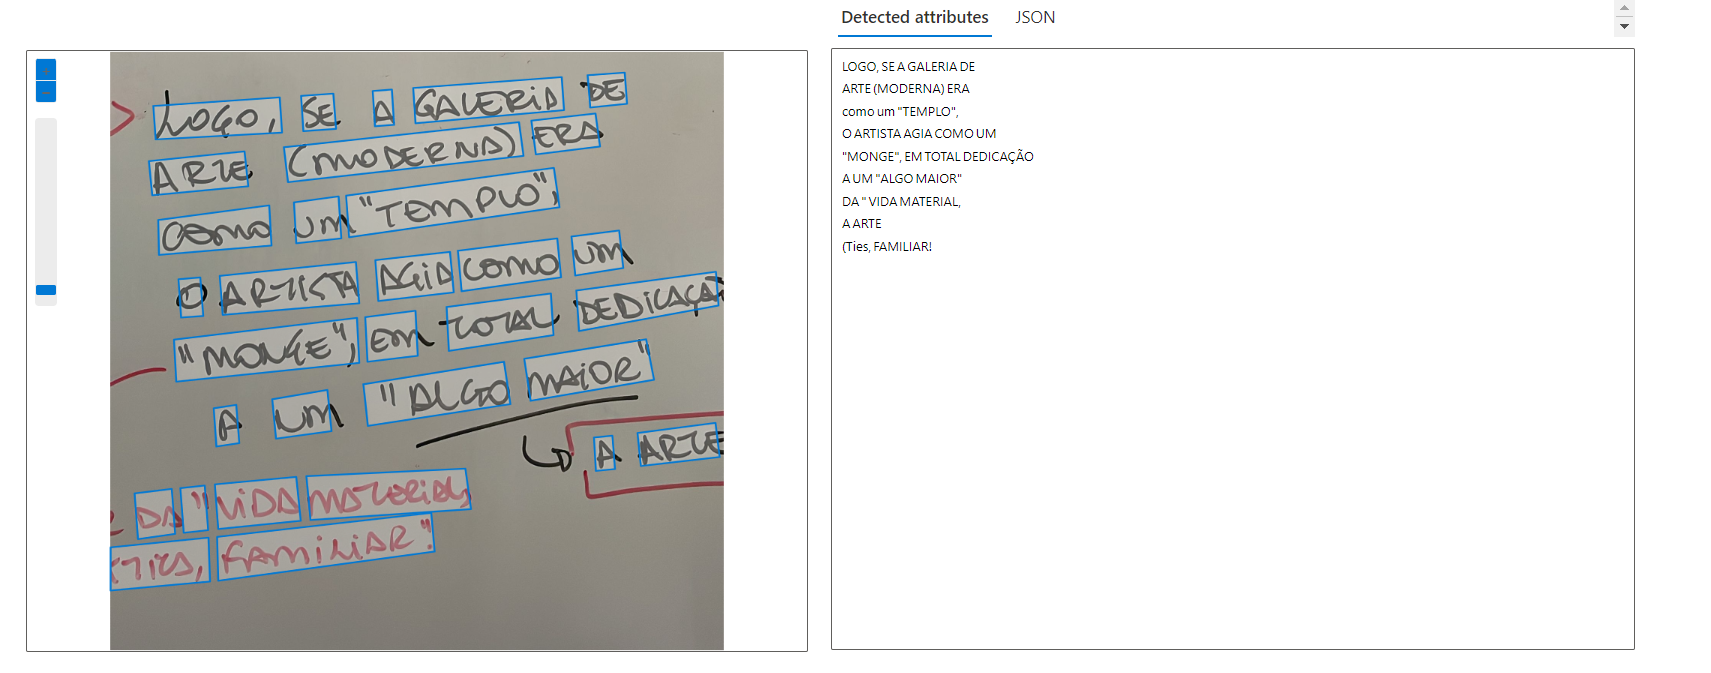 Detected attributes JSON
LOGO, SE A GALERIA DE
ARTE (MODERNA) ERA
COMO UM "TEMPLO",
O ARTISTA AGIA COMO UM
"MONGE", EM TOTAL DEDICAÇÃ
A UM "ALGO MAIOR"
↳ A ARTE
DA "VIDA MATERIAL,
FAMILIAR".
LOGO, SE A GALERIA DE
ARTE (MODERNA) ERA
como um "TEMPLO",
O ARTISTA AGIA COMO UM
"MONGE", EM TOTAL DEDICAÇÃO
A UM "ALGO MAIOR"
DA " VIDA MATERIAL,
A ARTE
(Ties, FAMILIAR!